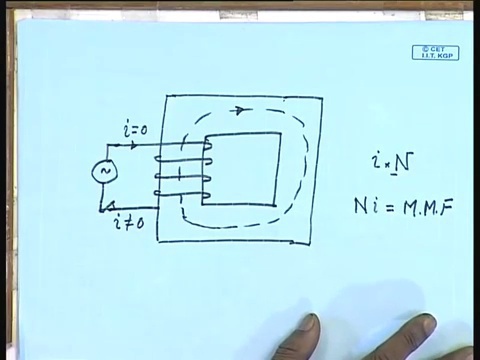 © CET
I.I.T. KGP
i=0
~
i≠0
i×N
Ni = M.M.F